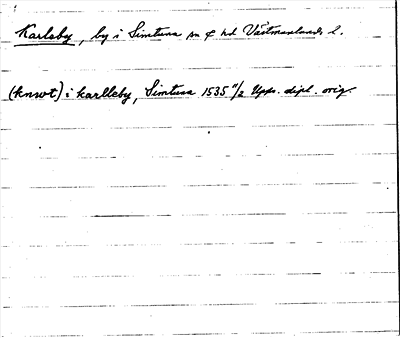 Karleby, by i Simtuna sn & hd Västmanlands l.
(knwt) i karlleby, Simtuna 1535 11/2 Upps. dipl. orig.